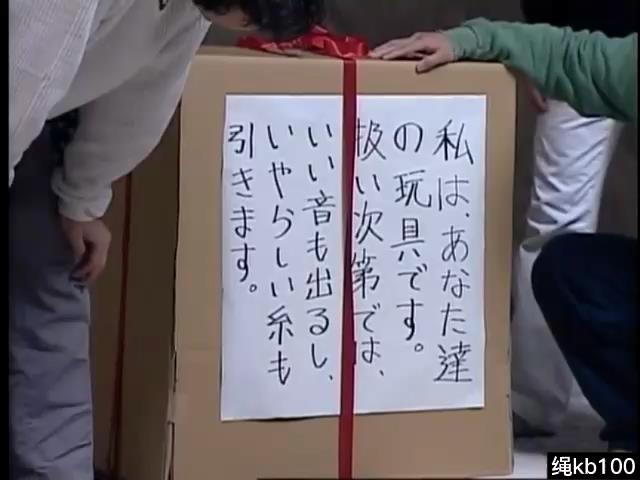 私は、あなた達
の玩具です。
扱い次第では、
いい音も出るし、
いやらしい糸も
引きます。
绳kb100